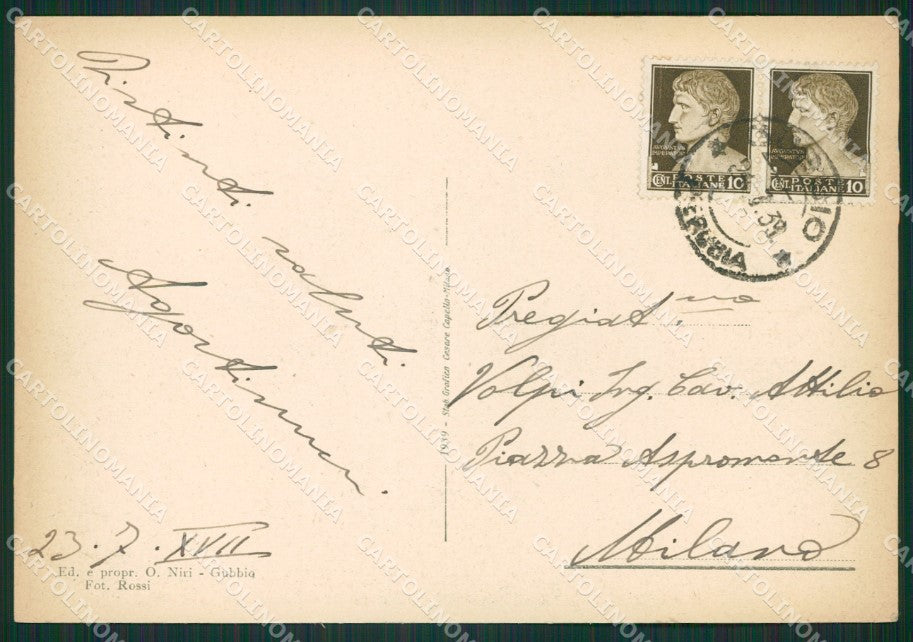 Distinti saluti.
Agostinucci.
23.7.XVII
Ed. e propr. O. Niri - Gubbio
Fot. Rossi
1939 - Stab. Grafico Cesare Capello - Milano
AUGUSTUS
CENT. POSTE ITALIANE 10
CENT. POSTE ITALIANE 10
39
Pregiat.mo
Volpi Ing. Cav. Attilio
Piazza Aspromonte 8
Milano
CARTOLINOMANIA